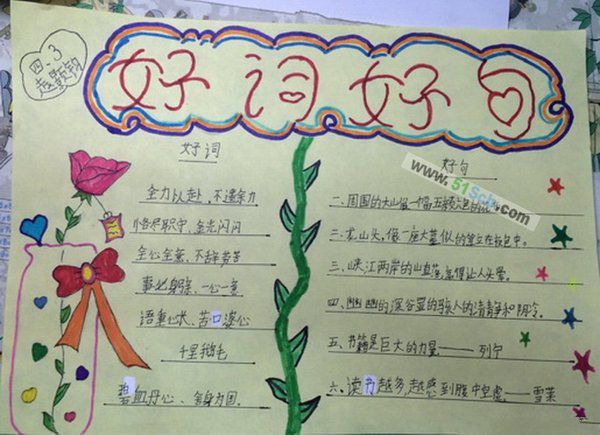 四、3
好词好句
好词
全力以赴、不遗余力
恪尽职守、金光闪闪
全心全意、不辞劳苦
事必躬亲、一心一意
语重心长、苦口婆心
千里鹅毛
碧血丹心、舍身为国。
好句
一、周围的大山像一幅五颜六色的
二、龙山头,像一座大墓似的耸立在
三、峡江两岸的山直
让人头晕。
四、幽幽的深谷显的骇人的清静和阴冷。
五、书籍是巨大的力量——列宁
六、读书越多,越感到腹中空虚——雪莱
www.51Sch.com